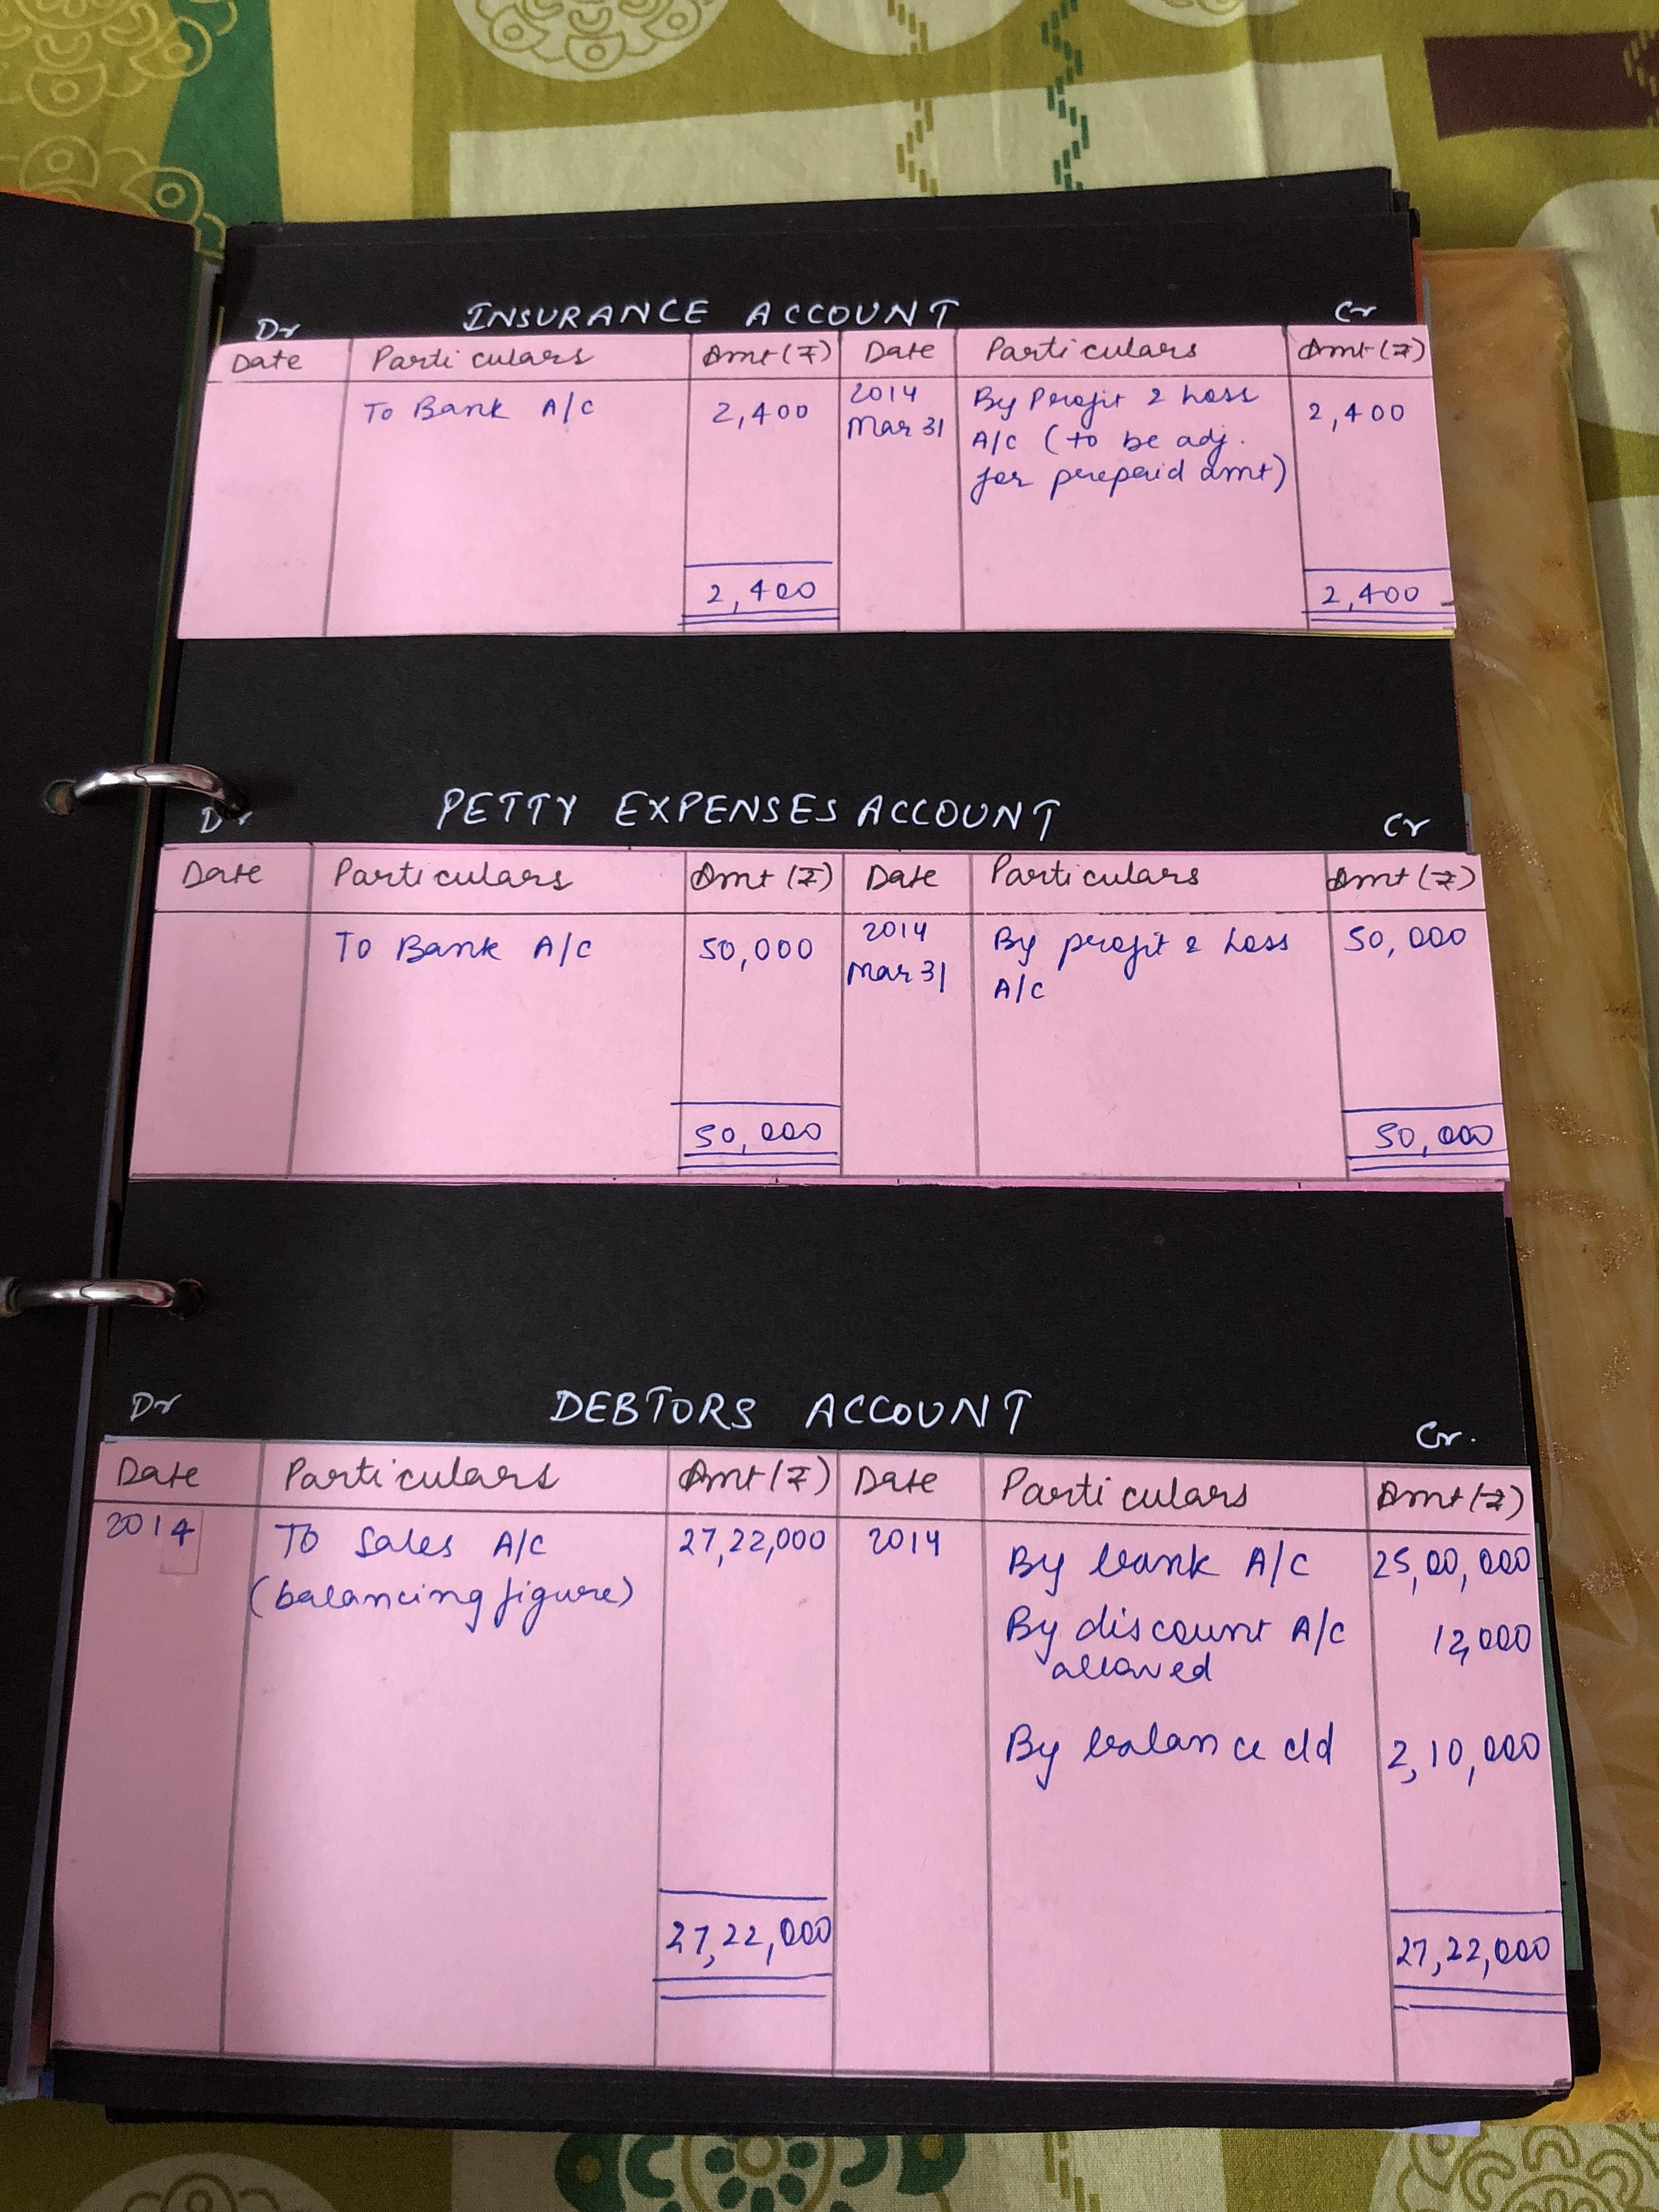 INSURANCE ACCOUNT
Dr Cr
Date Particulars Amt (₹) Date Particulars Amt (₹)
To Bank A/c 2,400 2014 By Profit & Loss 2,400
Mar 31 A/c (to be adj.
for prepaid amt)
2,400 2,400
PETTY EXPENSES ACCOUNT
Dr Cr
Date Particulars Amt (₹) Date Particulars Amt (₹)
To Bank A/c 50,000 2014 By profit & Loss 50,000
Mar 31 A/c
50,000 50,000
DEBTORS ACCOUNT
Dr Cr.
Date Particulars Amt (₹) Date Particulars Amt (₹)
2014 To Sales A/c 27,22,000 2014 By bank A/c 25,00,000
(balancing figure) By discount A/c 12,000
allowed
By balance c/d 2,10,000
27,22,000 27,22,000